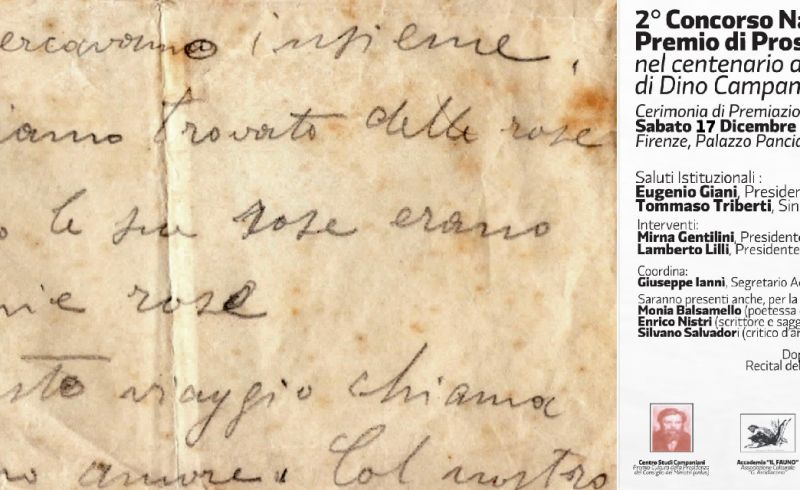 ercavamo insieme
iamo trovato delle rose
o le sue rose erano
mie rose
sto viaggio chiama
mo amore. Col nostro
2° Concorso Na
Premio di Pros
nel centenario d
di Dino Campan
Cerimonia di Premiazio
Sabato 17 Dicembre
Firenze, Palazzo Pancia
Saluti Istituzionali :
Eugenio Giani, Presiden
Tommaso Triberti, Sin
Interventi:
Mirna Gentilini, Presidente
Lamberto Lilli, Presidente
Coordina:
Giuseppe Ianni, Segretario Ac
Saranno presenti anche, per la
Monia Balsamello (poetessa e
Enrico Nistri (scrittore e sagg
Silvano Salvadori (critico d'ar
Dop
Recital del
Centro Studi Campaniani
Premio Cultura della Presidenza
del Consiglio dei Ministri
Accademia "IL FAUNO"
Associazione Culturale